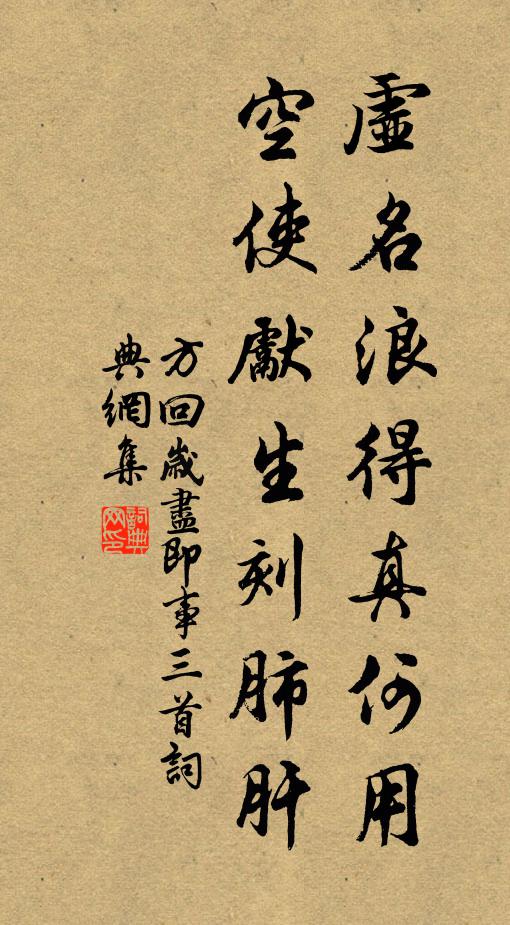 虛名浪得真何用
空使獻生刻肺肝
方回歲盡即事三首詞
典網集
詞典網印